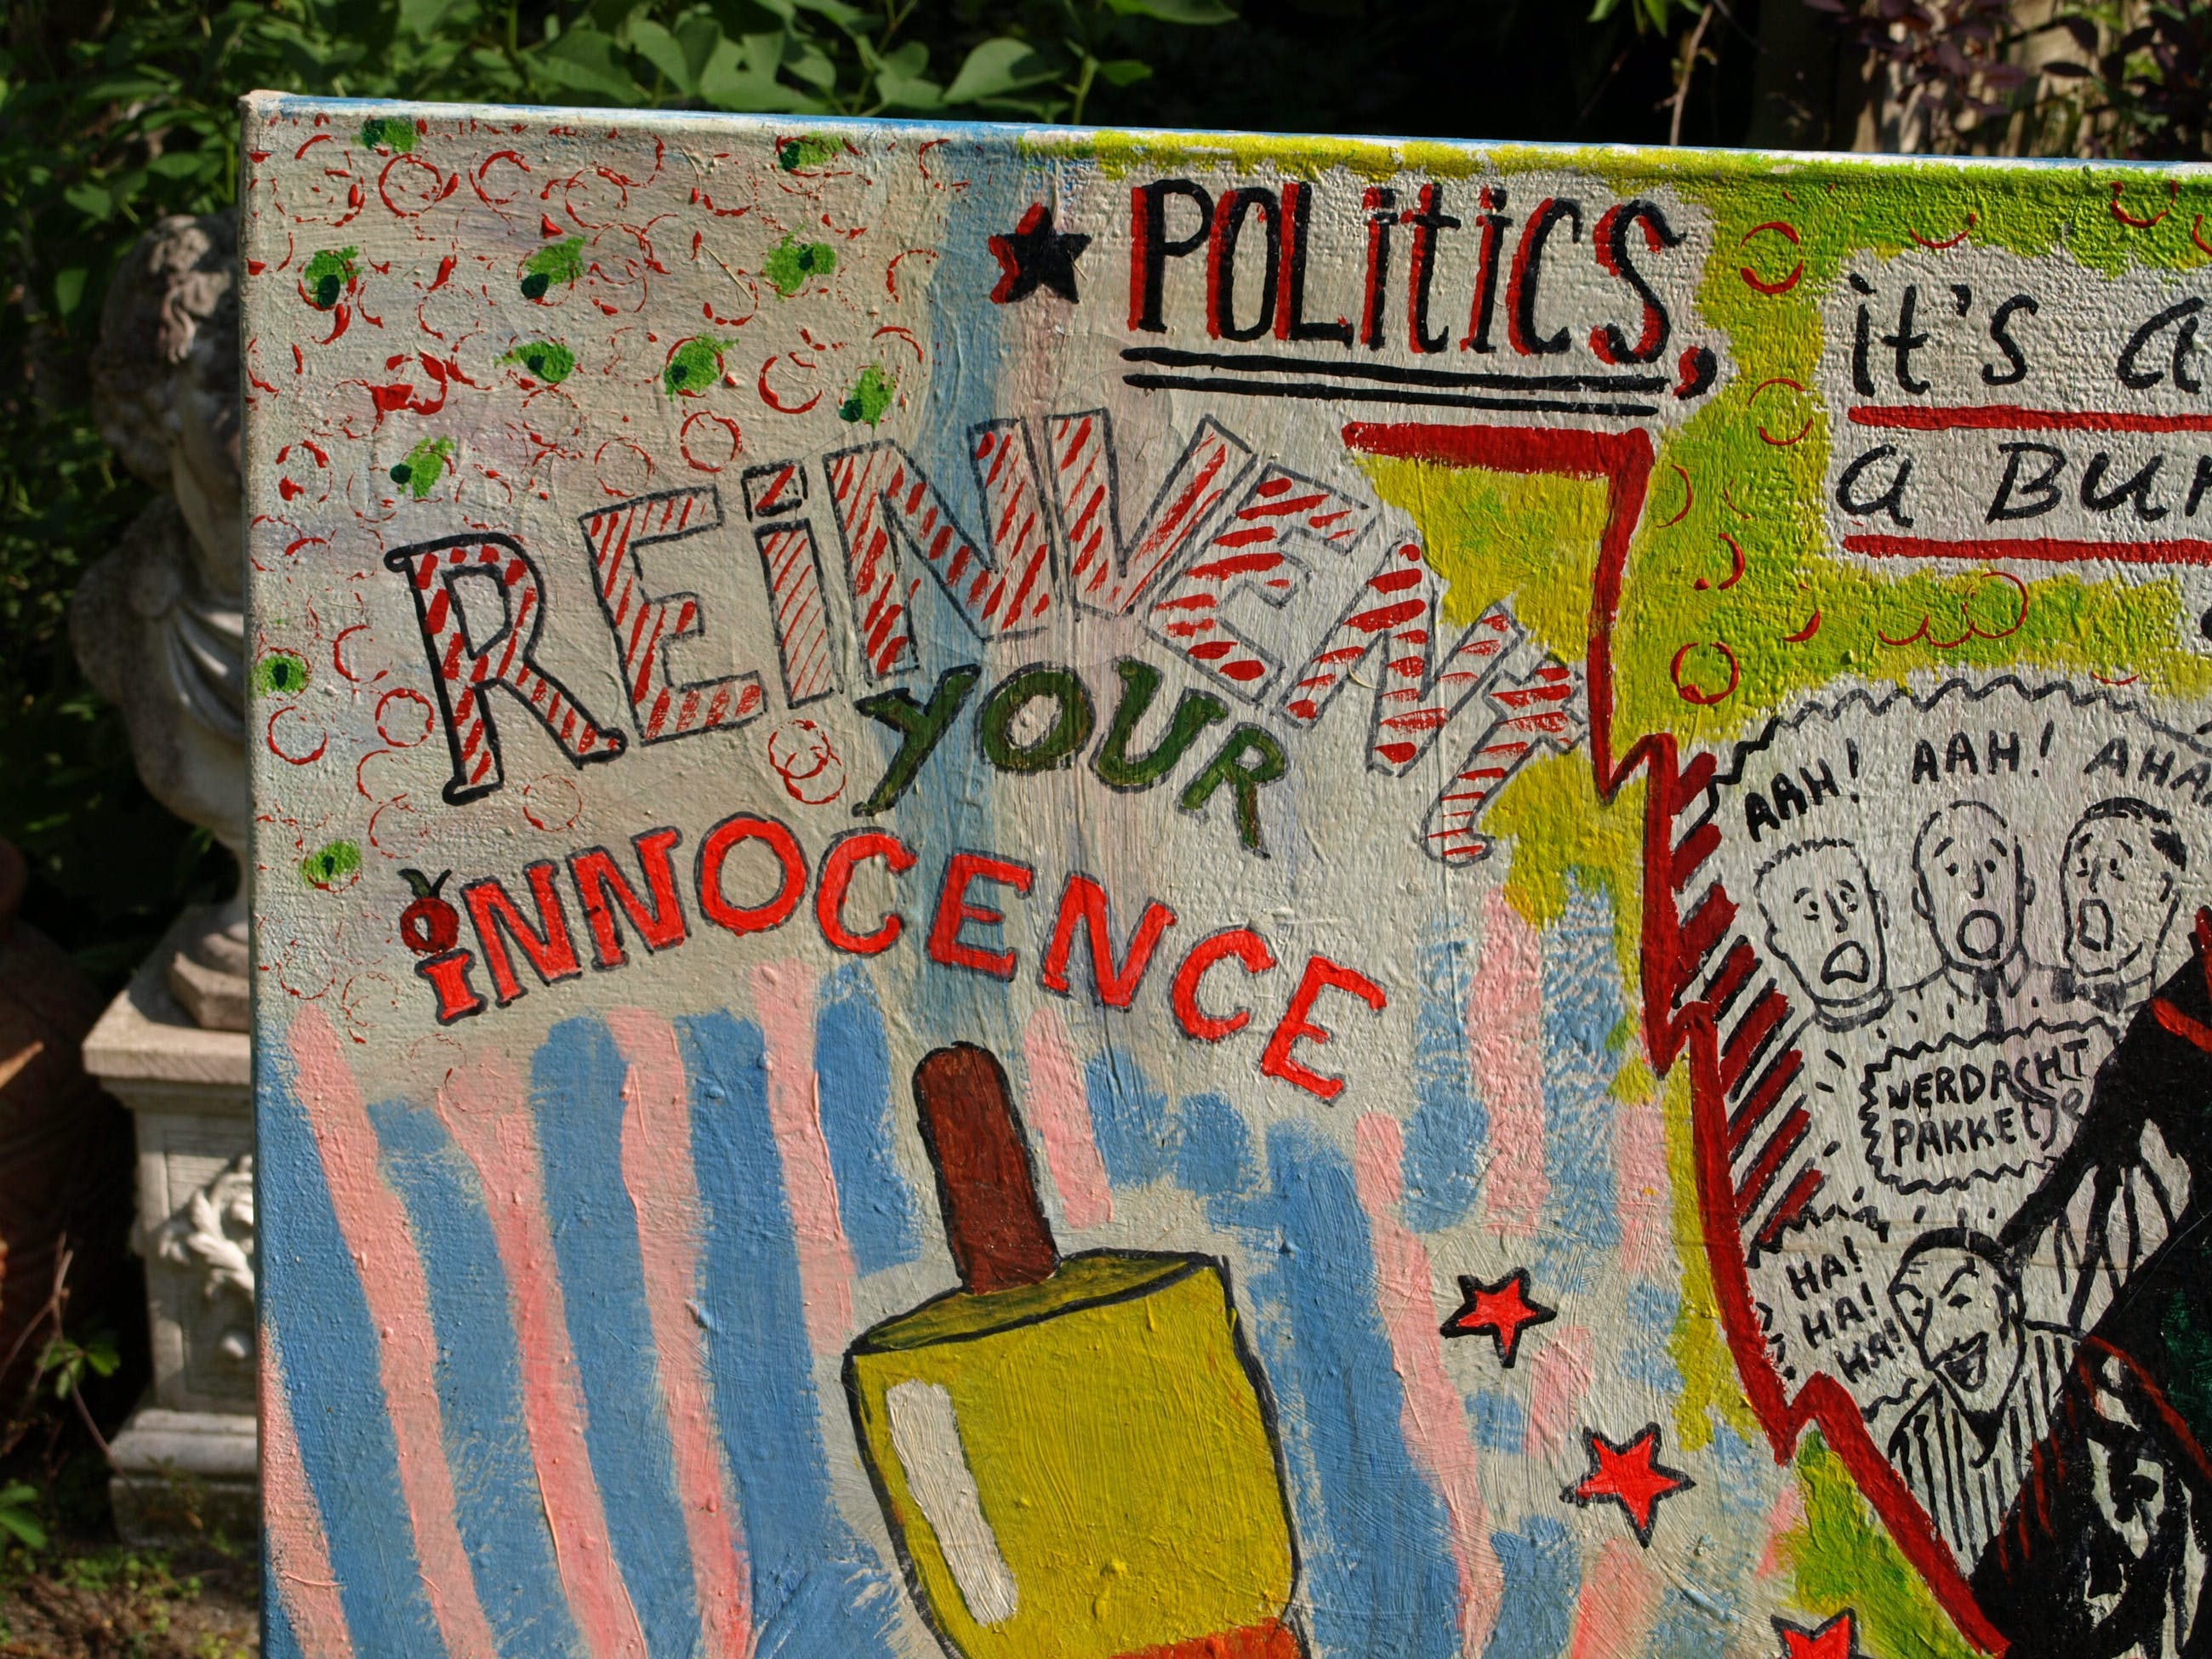 POLitiCS,
it's a
a BUR
REiNVENT
YOUR
iNNOCENCE
AAH! AAH! AHA
VERDACHT
PAKKETJE
HA!
HA!
HA!